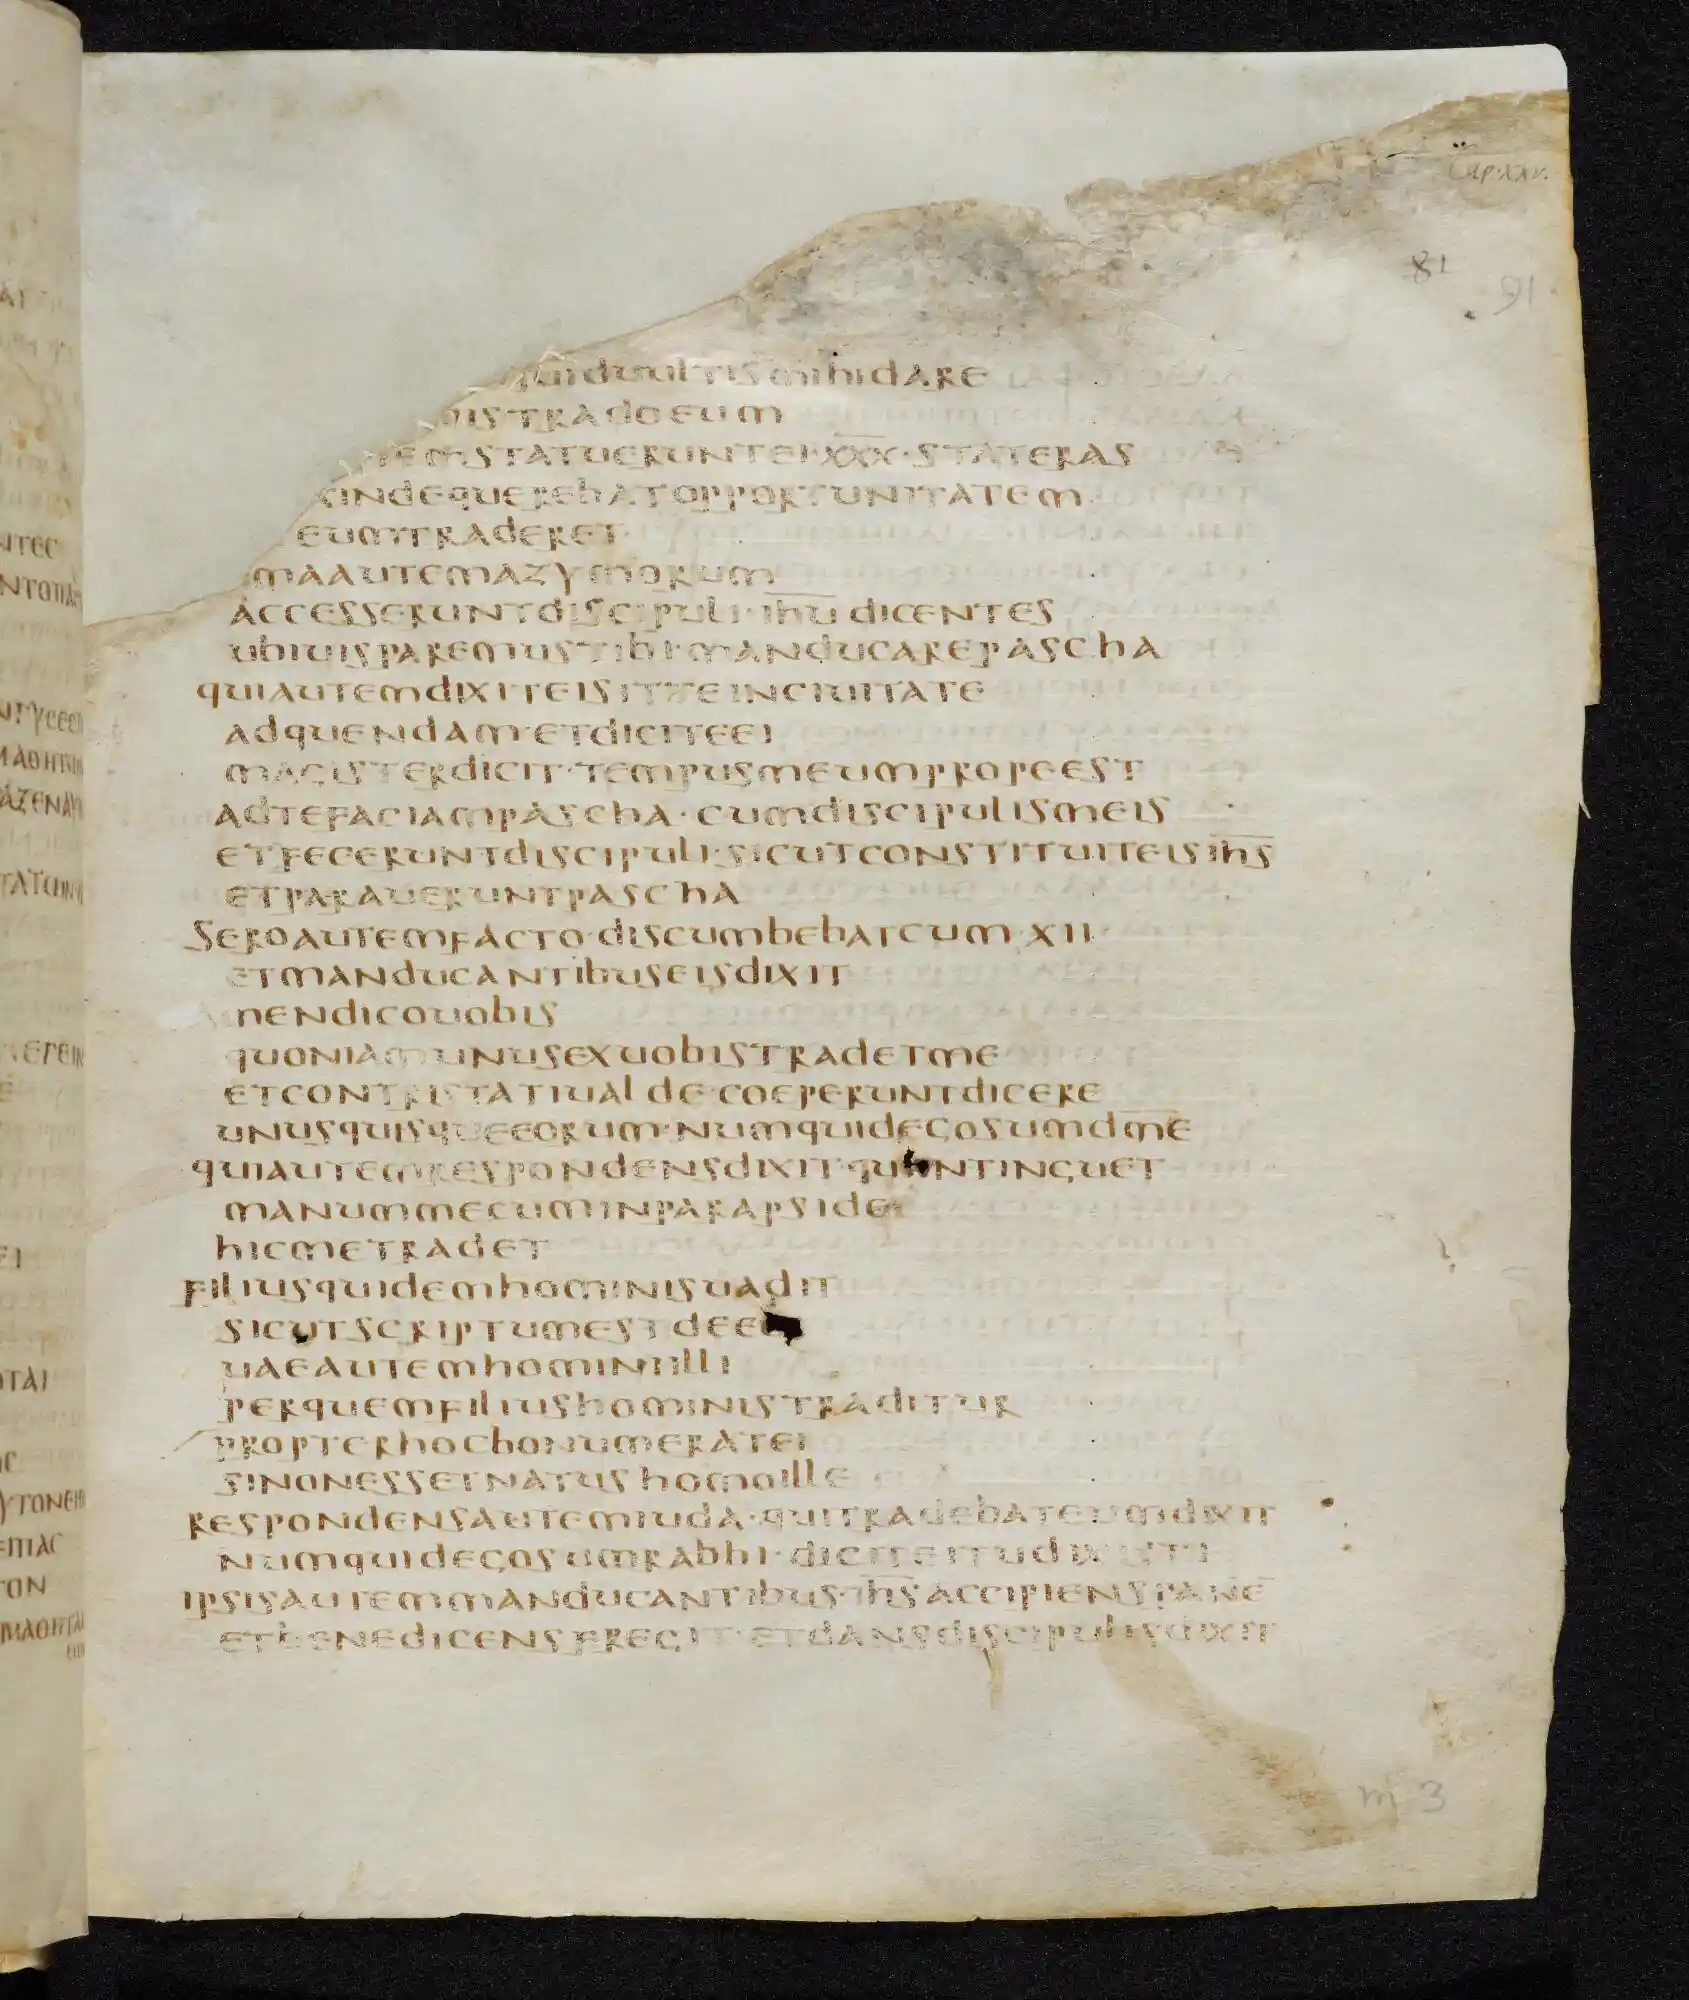 Cap. xxv.
81
91
quiduultismihidare
uistradoeum
temstatueruntei·xxx·stateras
xindequerebatopportunitatem
eumtraderet
maautemazymorum
accesseruntdiscipuli·ihu dicentes
ubiuisparemustibi·manducarepascha
quiautemdixiteisiteinciuitate
adquendam·etdiciteei
magisterdicit·tempusmeumpropeest
adtefaciampascha·cumdiscipulismeis
etfeceruntdiscipuli·sicutconstituiteisihs
etparaueruntpascha
seroautemfacto·discumbebatcum·xii·
etmanducantibuseisdixit
amendicouobis
quoniamunusexuobistradetme
etcontristatiualde·coeperuntdicere
unusquisqueeorum·numquidegosumdme
quiautemrespondensdixit·quintinguet
manummecuminparapside
hicmetradet
filiusquidemhominisuadit
sicutscriptumestdeeo
uaeautemhominiilli
perquemfiliushoministraditur
propterhocbonumeratei
sinonessetnatushomoille
respondensautemiuda·quitradebateumdixit
numquidegosumrabbi·diciteitudixisti
ipsisautemmanducantibus·ihsaccipienspane
etbenedicensfregit·etdansdiscipulisdixit
m 3